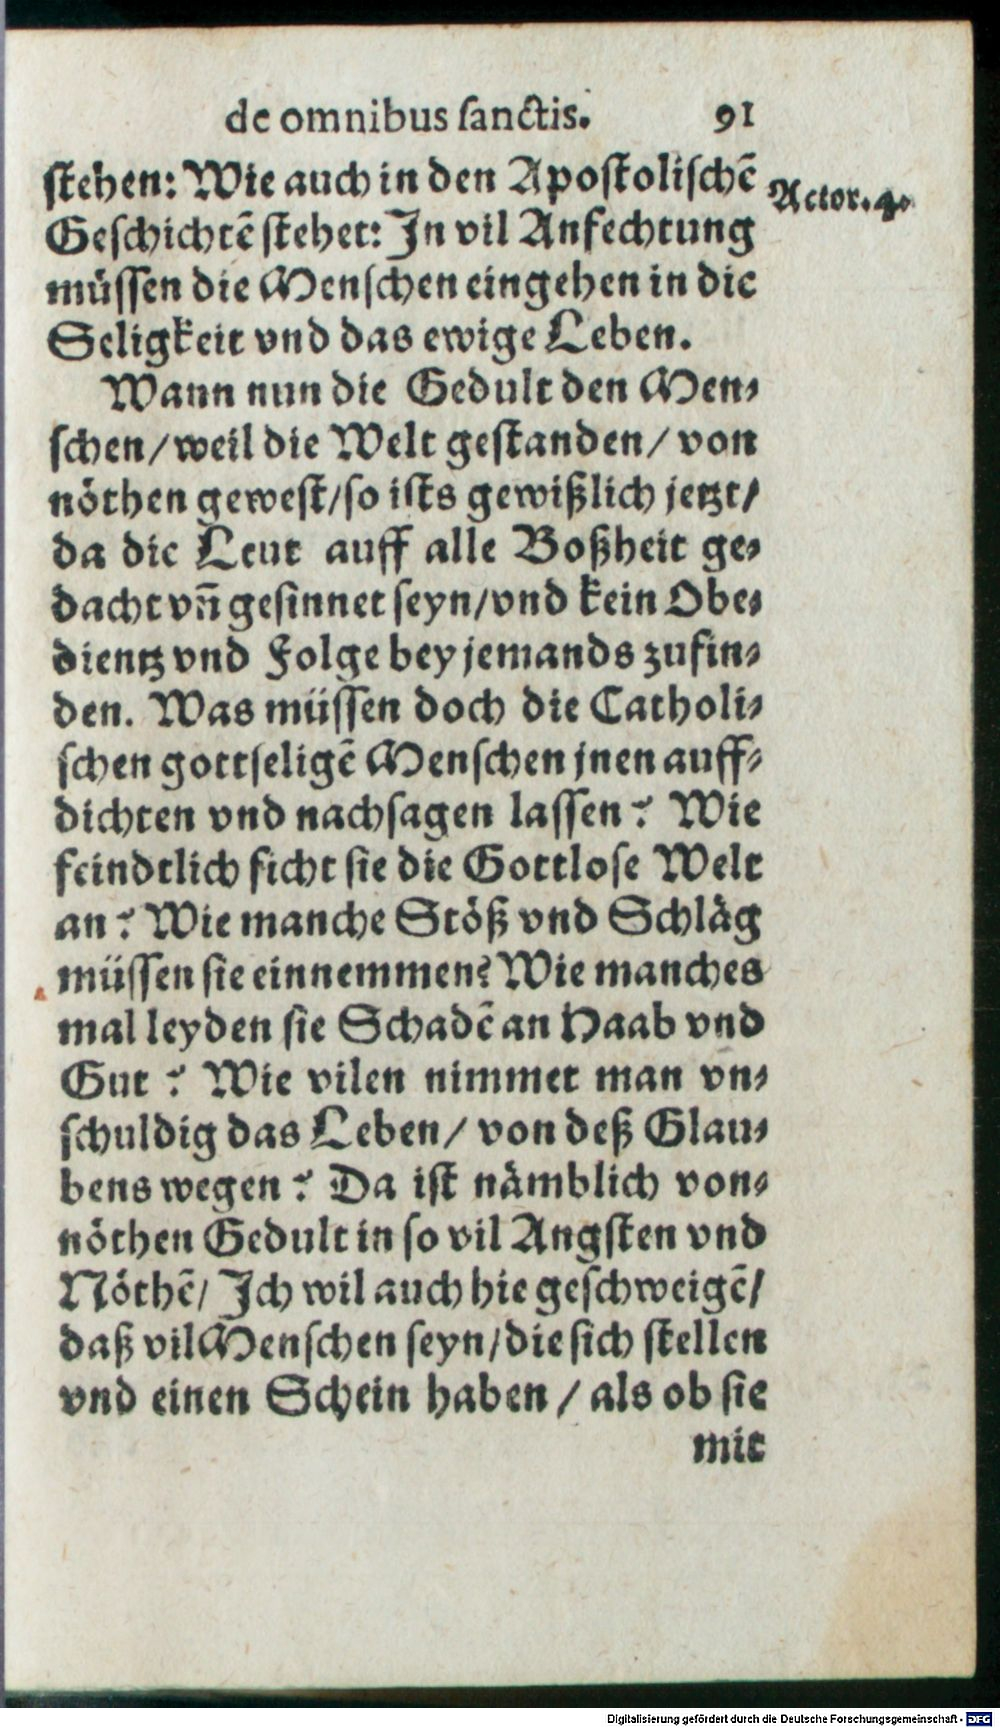 de omnibus sanctis. 91
stehen: Wie auch in den Apostolischẽ
Actor. 4.
Geschichtẽ stehet: In vil Anfechtung
müssen die Menschen eingehen in die
Seligkeit vnd das ewige Leben.
Wann nun die Gedult den Men-
schen/ weil die Welt gestanden/ von
nöthen gewest/ so ists gewißlich jetzt/
da die Leut auff alle Boßheit ge-
dacht vñ gesinnet seyn/ vnd kein Obe-
dientz vnd Folge bey jemands zufin-
den. Was müssen doch die Catholi-
schen gottseligẽ Menschen jnen auff-
dichten vnd nachsagen lassen? Wie
feindtlich ficht sie die Gottlose Welt
an? Wie manche Stöß vnd Schläg
müssen sie einnemmen? Wie manches
mal leyden sie Schadẽ an Haab vnd
Gut? Wie vilen nimmet man vn-
schuldig das Leben/ von deß Glau-
bens wegen? Da ist nämblich von-
nöthen Gedult in so vil Angsten vnd
Nöthẽ/ Ich wil auch hie geschweigẽ/
daß vil Menschen seyn/ die sich stellen
vnd einen Schein haben/ als ob sie
mit
Digitalisierung gefördert durch die Deutsche Forschungsgemeinschaft - DFG